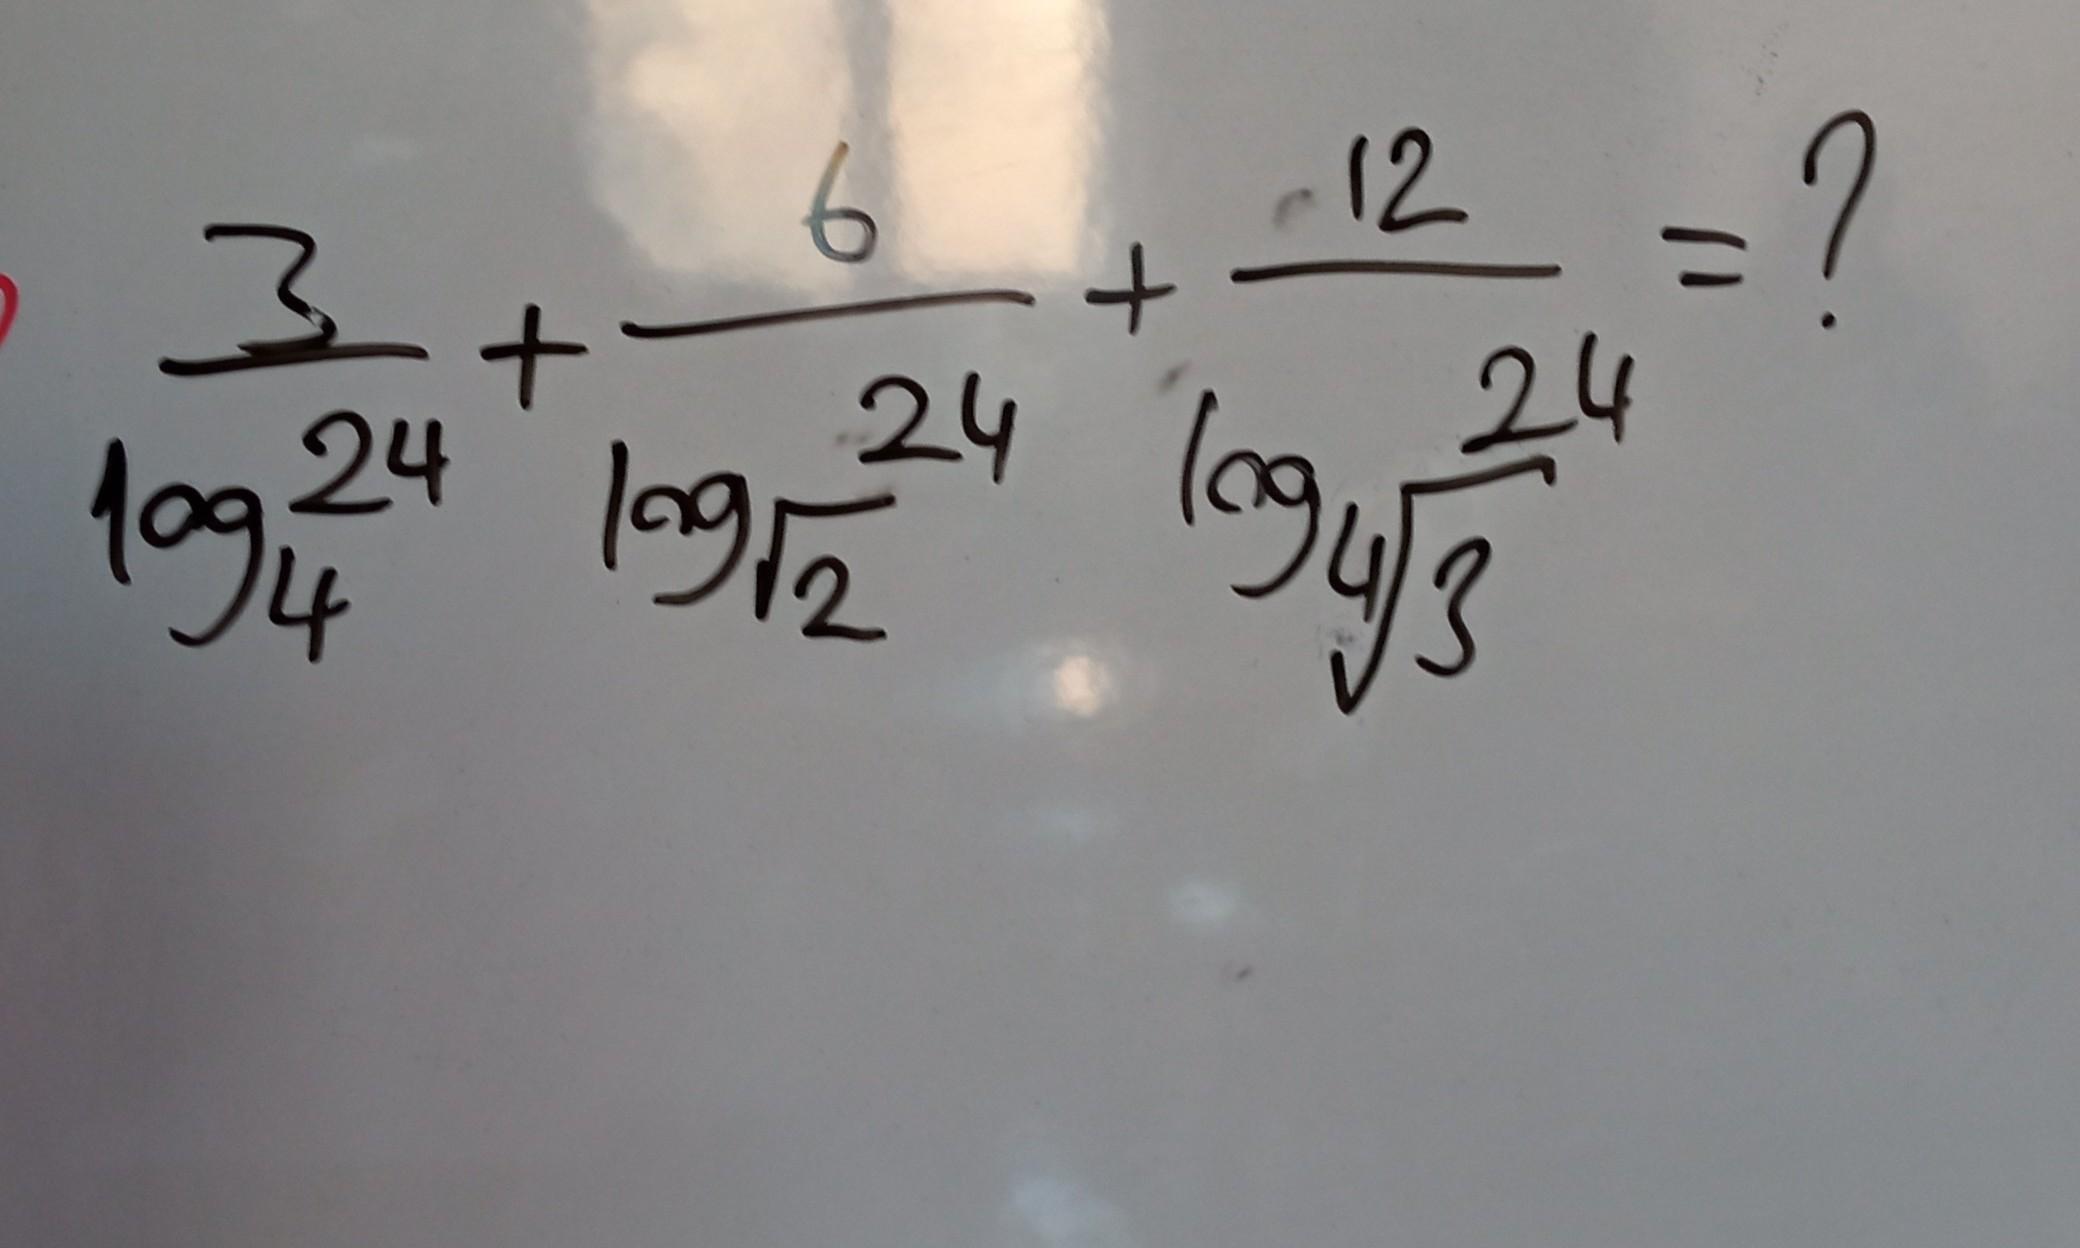 3/log₄²⁴ + 6/log_√2²⁴ + 12/log_⁴√3²⁴ = ?